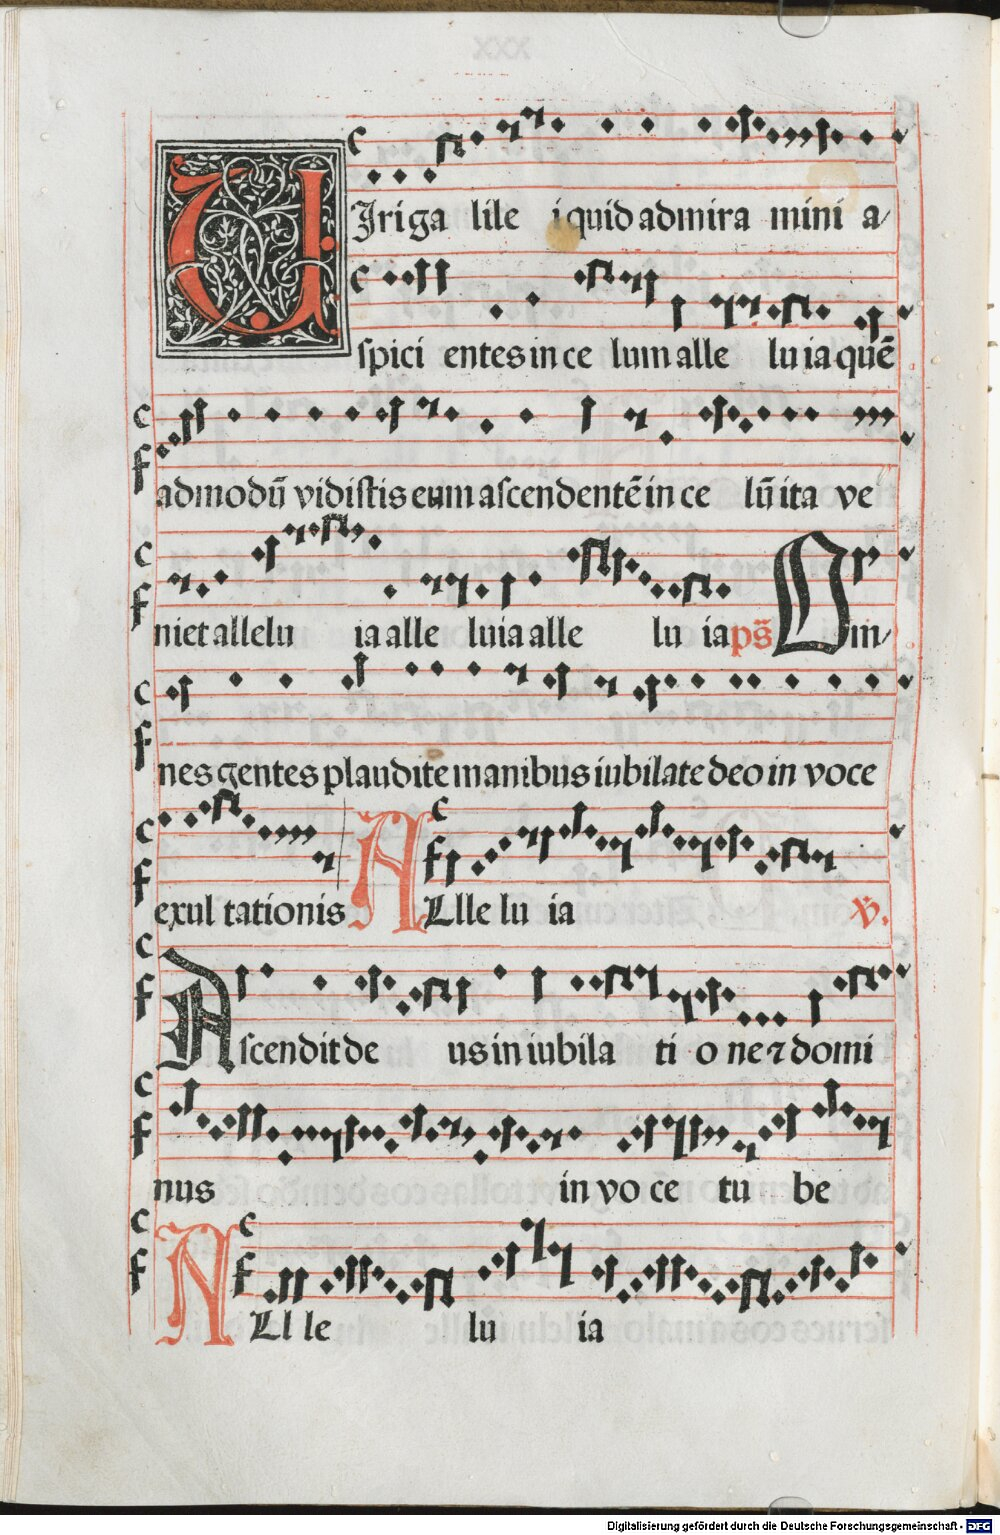 UJri ga lile i quid admira mini a/
spici entes in ce lum alle lu ia quē
admodū vidistis eum ascendentē in ce lū ita ve
niet allelu ia alle luia alle lu ia ps̄ Om/
nes gentes plaudite manibus iubilate deo in voce
exul tationis ALle lu ia V.
Ascendit de us in iubila ti o ne ⁊ domi
nus in vo ce tu be
ALl le lu ia
Digitalisierung gefördert durch die Deutsche Forschungsgemeinschaft - DFG